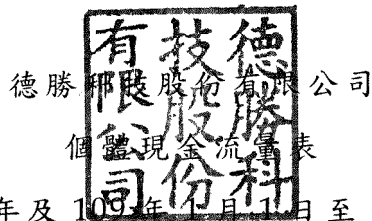 德勝科技股份有限公司
德勝科技股份有限公司
個體現金流量表
年及 109 年 1 月 1 日至